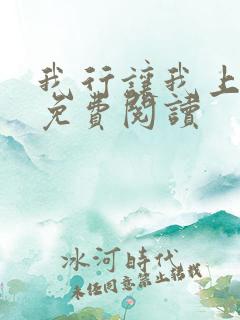 我行讓我上
免費閱讀
冰河時代
未經同意禁止轉載